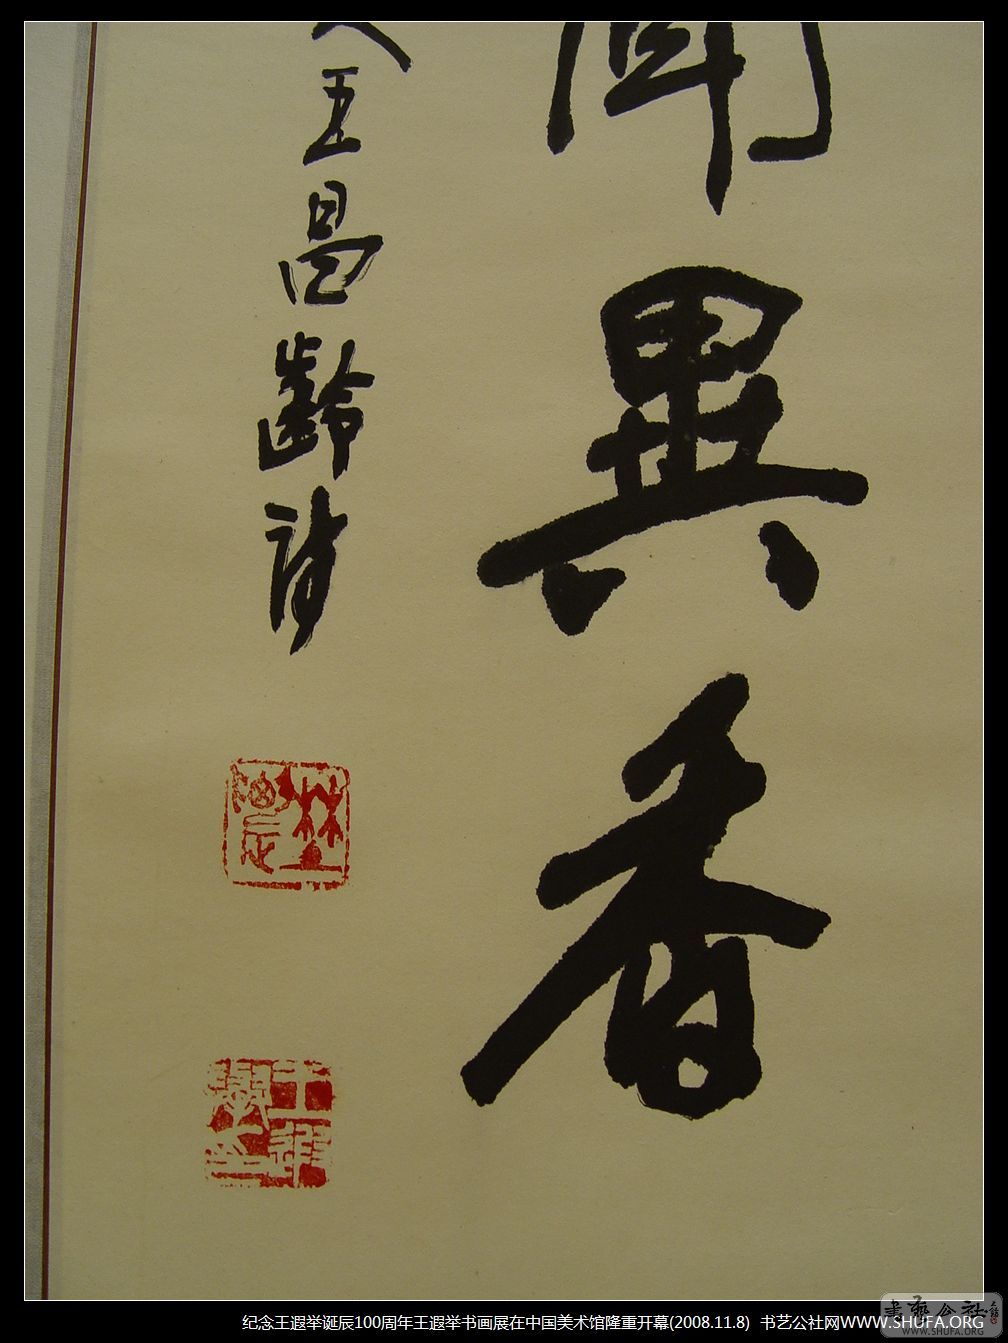 聞異香
王昌齡詩
王遐舉印
纪念王遐举诞辰100周年王遐举书画展在中国美术馆隆重开幕(2008.11.8) 书艺公社网WWW.SHUFA.ORG
書艺公社
WWW.SHUFA.ORG